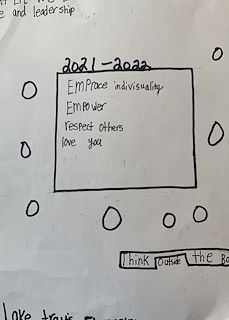 e and leadership
2021-2022
EmPrace indivisuality
EmPower
respect others
love you
Think outside the Bo